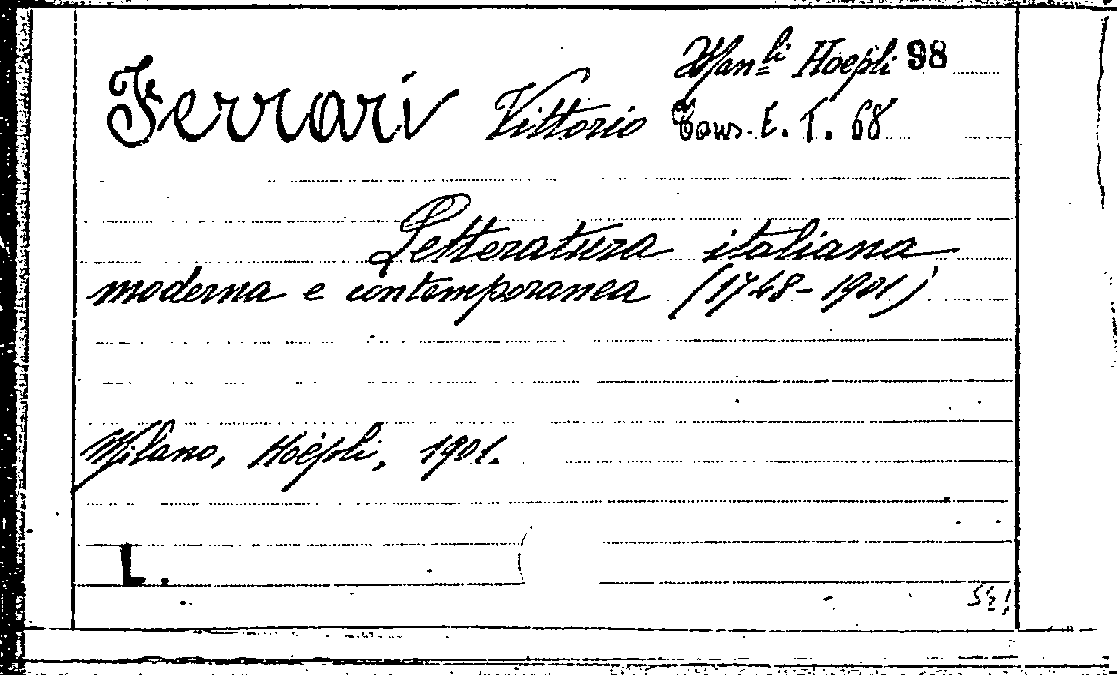 Ferrari Vittorio Man.li Hoepli 98
Cons. E. T. 68
Letteratura italiana
moderna e contemporanea (1748-1901)
Milano, Hoepli, 1901.
L.